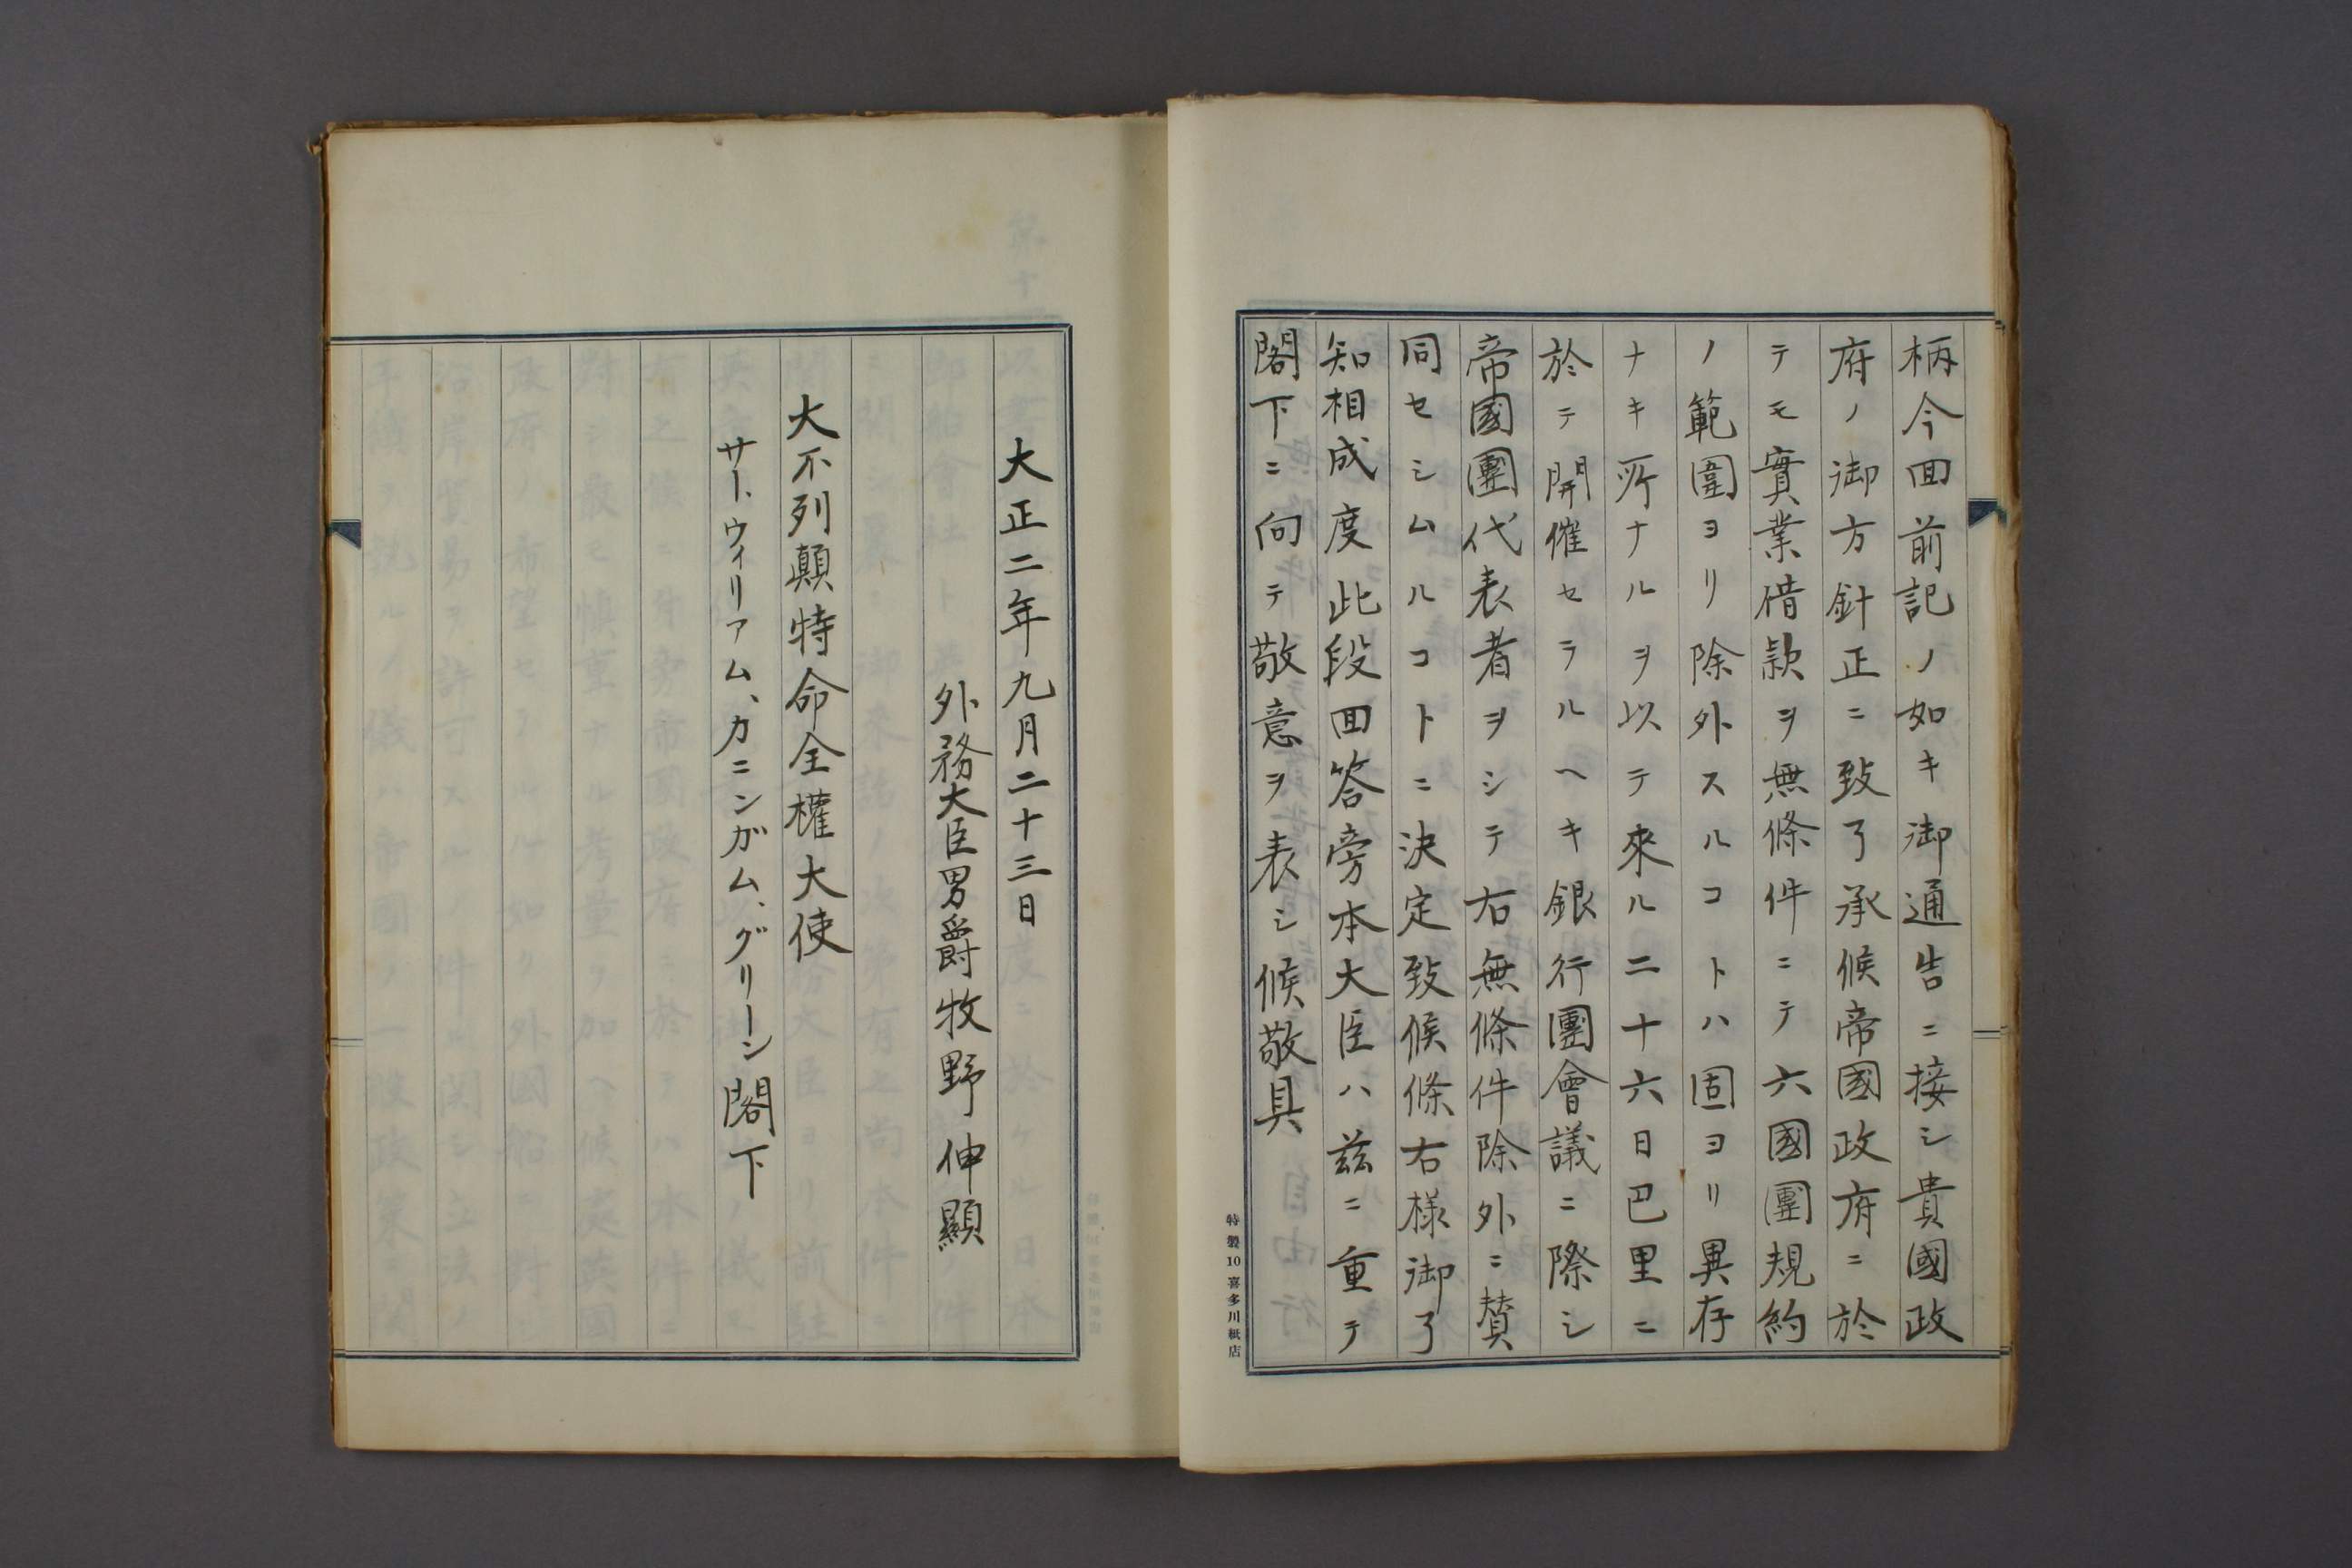 柄今回前記ノ如キ御通告ニ接シ貴國政
府ノ御方針正ニ致了承候帝國政府ニ於
テモ實業借款ヲ無條件ニテ六國團規約
ノ範圍ヨリ除外スルコトハ固ヨリ異存
ナキ所ナルヲ以テ來ル二十六日巴里ニ
於テ開催セラルヘキ銀行團會議ニ際シ
帝國團代表者ヲシテ右無條件除外ニ賛
同セシムルコトニ決定致候條右樣御了
知相成度此段回答旁本大臣ハ玆ニ重テ
閣下ニ向テ敬意ヲ表シ候敬具
特製10喜多川紙店
大正二年九月二十三日
外務大臣男爵牧野伸顯
大不列顛特命全權大使
サー、ウィリアム、カニンガム、グリーン閣下